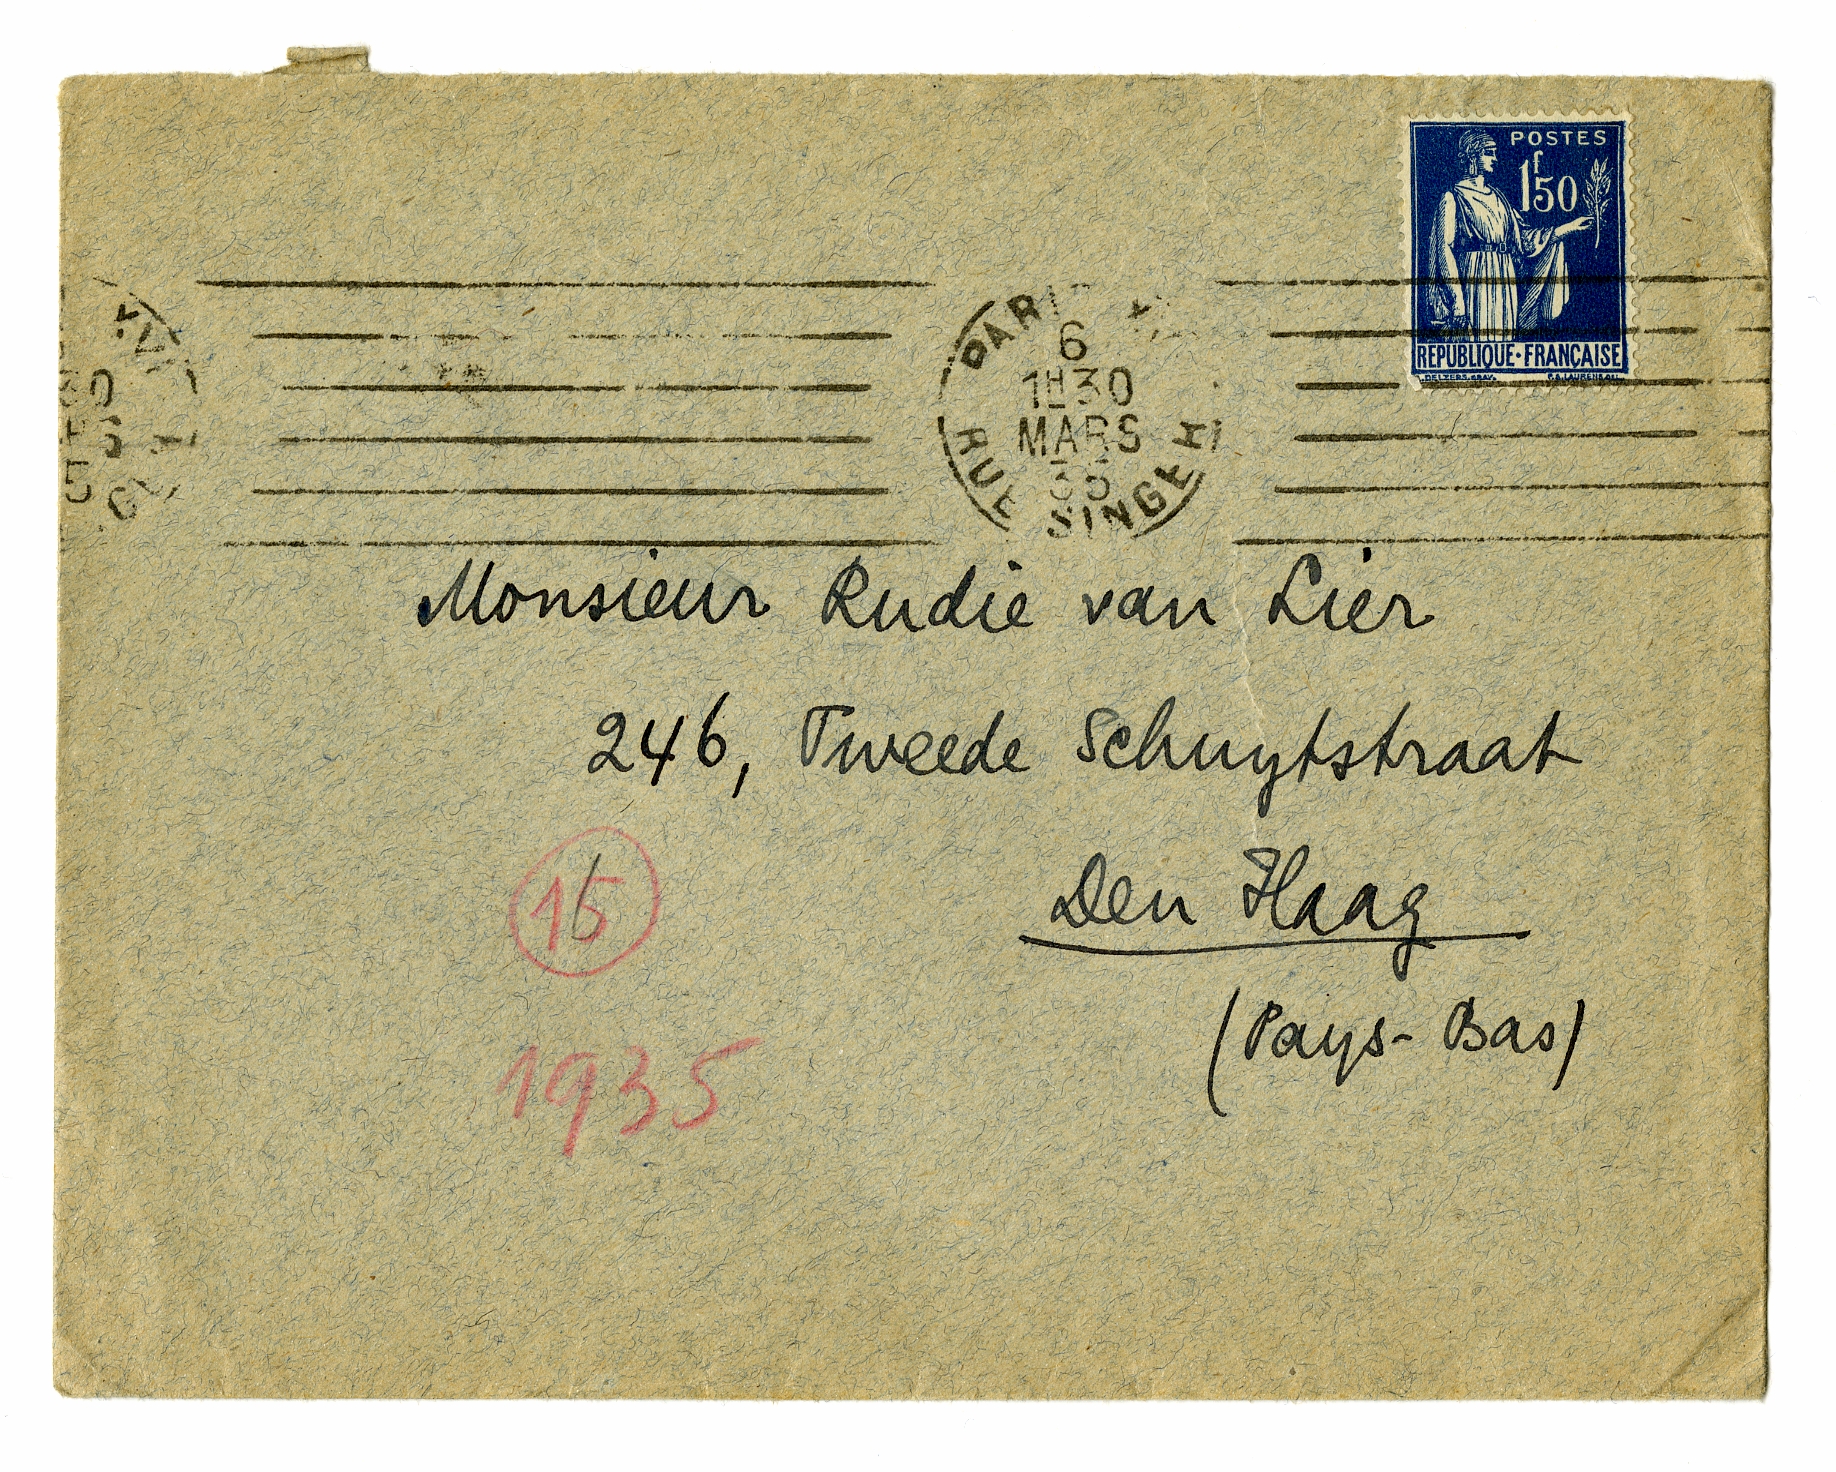 POSTES
1f50
REPUBLIQUE·FRANÇAISE
PARIS
6
1H30
MARS
35
RUE SINGER
Monsieur Rudie van Lier
246, Tweede Schuytstraat
Den Haag
(Pays-Bas)
1935